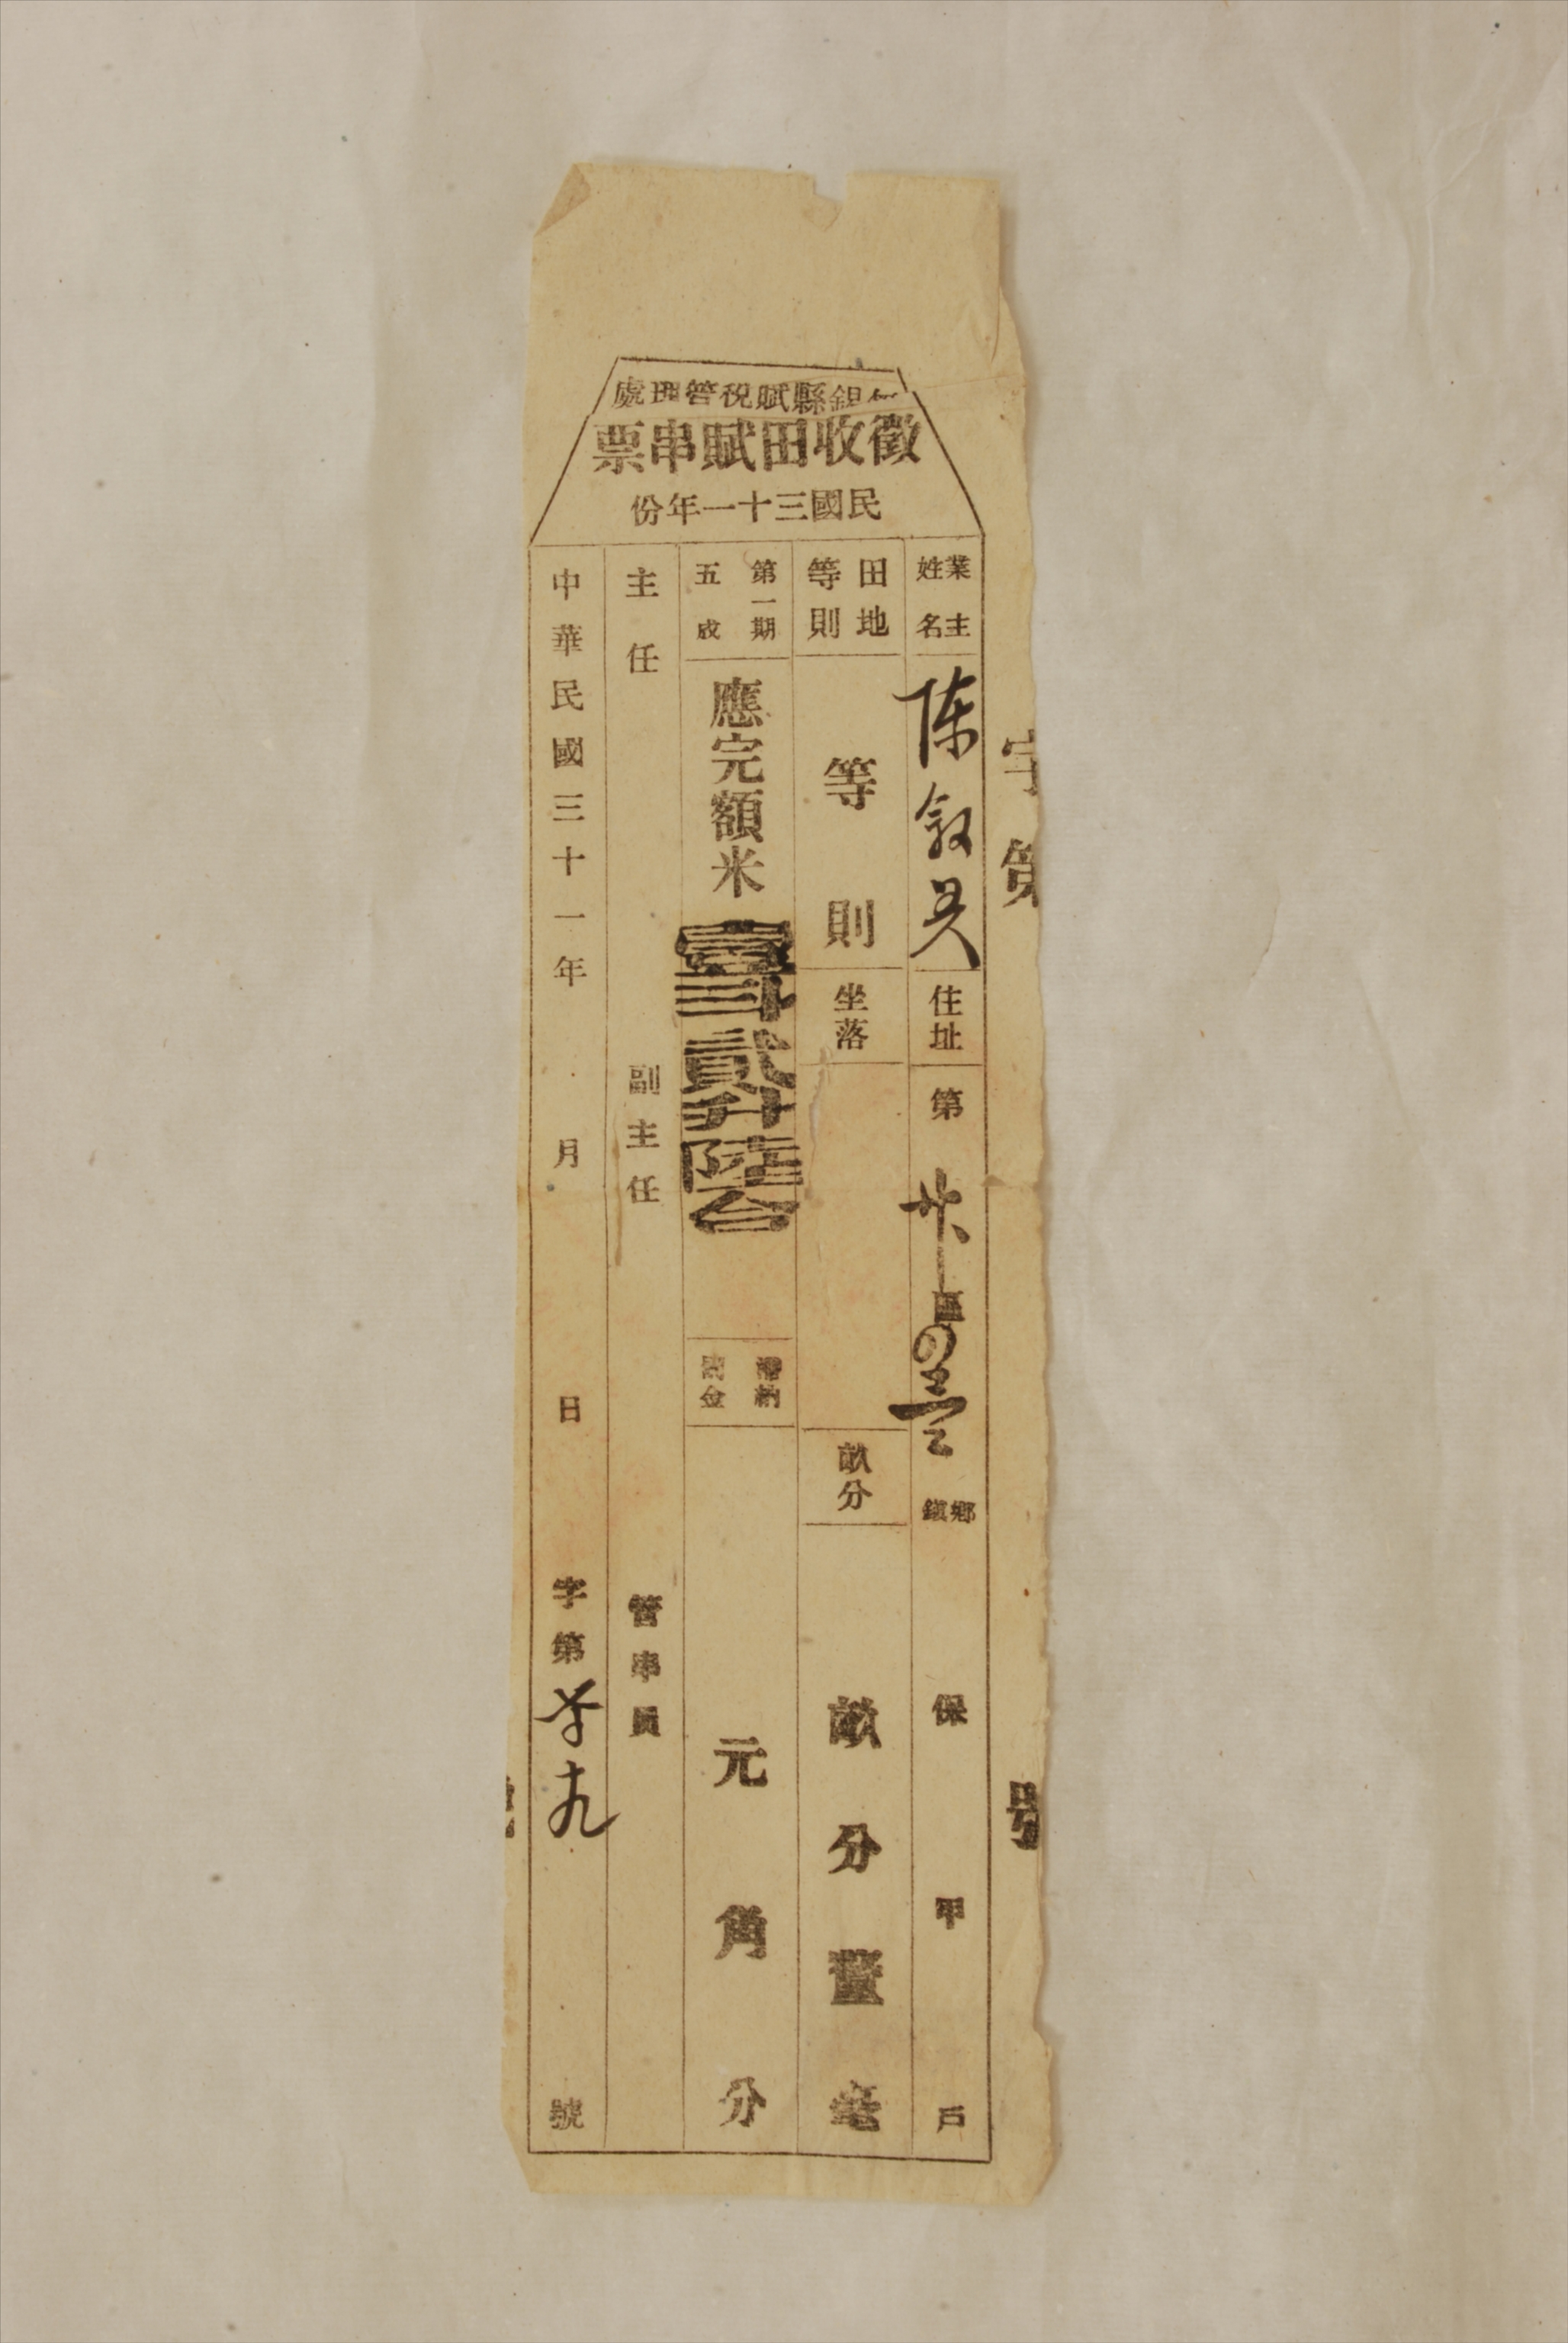 縣賦稅管理處
徵收田賦串票
民國三十一年份
字第
號
業主姓名
陈叙炅
住址
第
區
鄉鎮
保
甲
戶
田地等則
等則
坐落
畝分
畝分釐毫
第一期五成
應完額米
壹斗貳升陸合
滯納罰金
元角分
主任
副主任
管串員
中華民國三十一年
月
日
字第
號